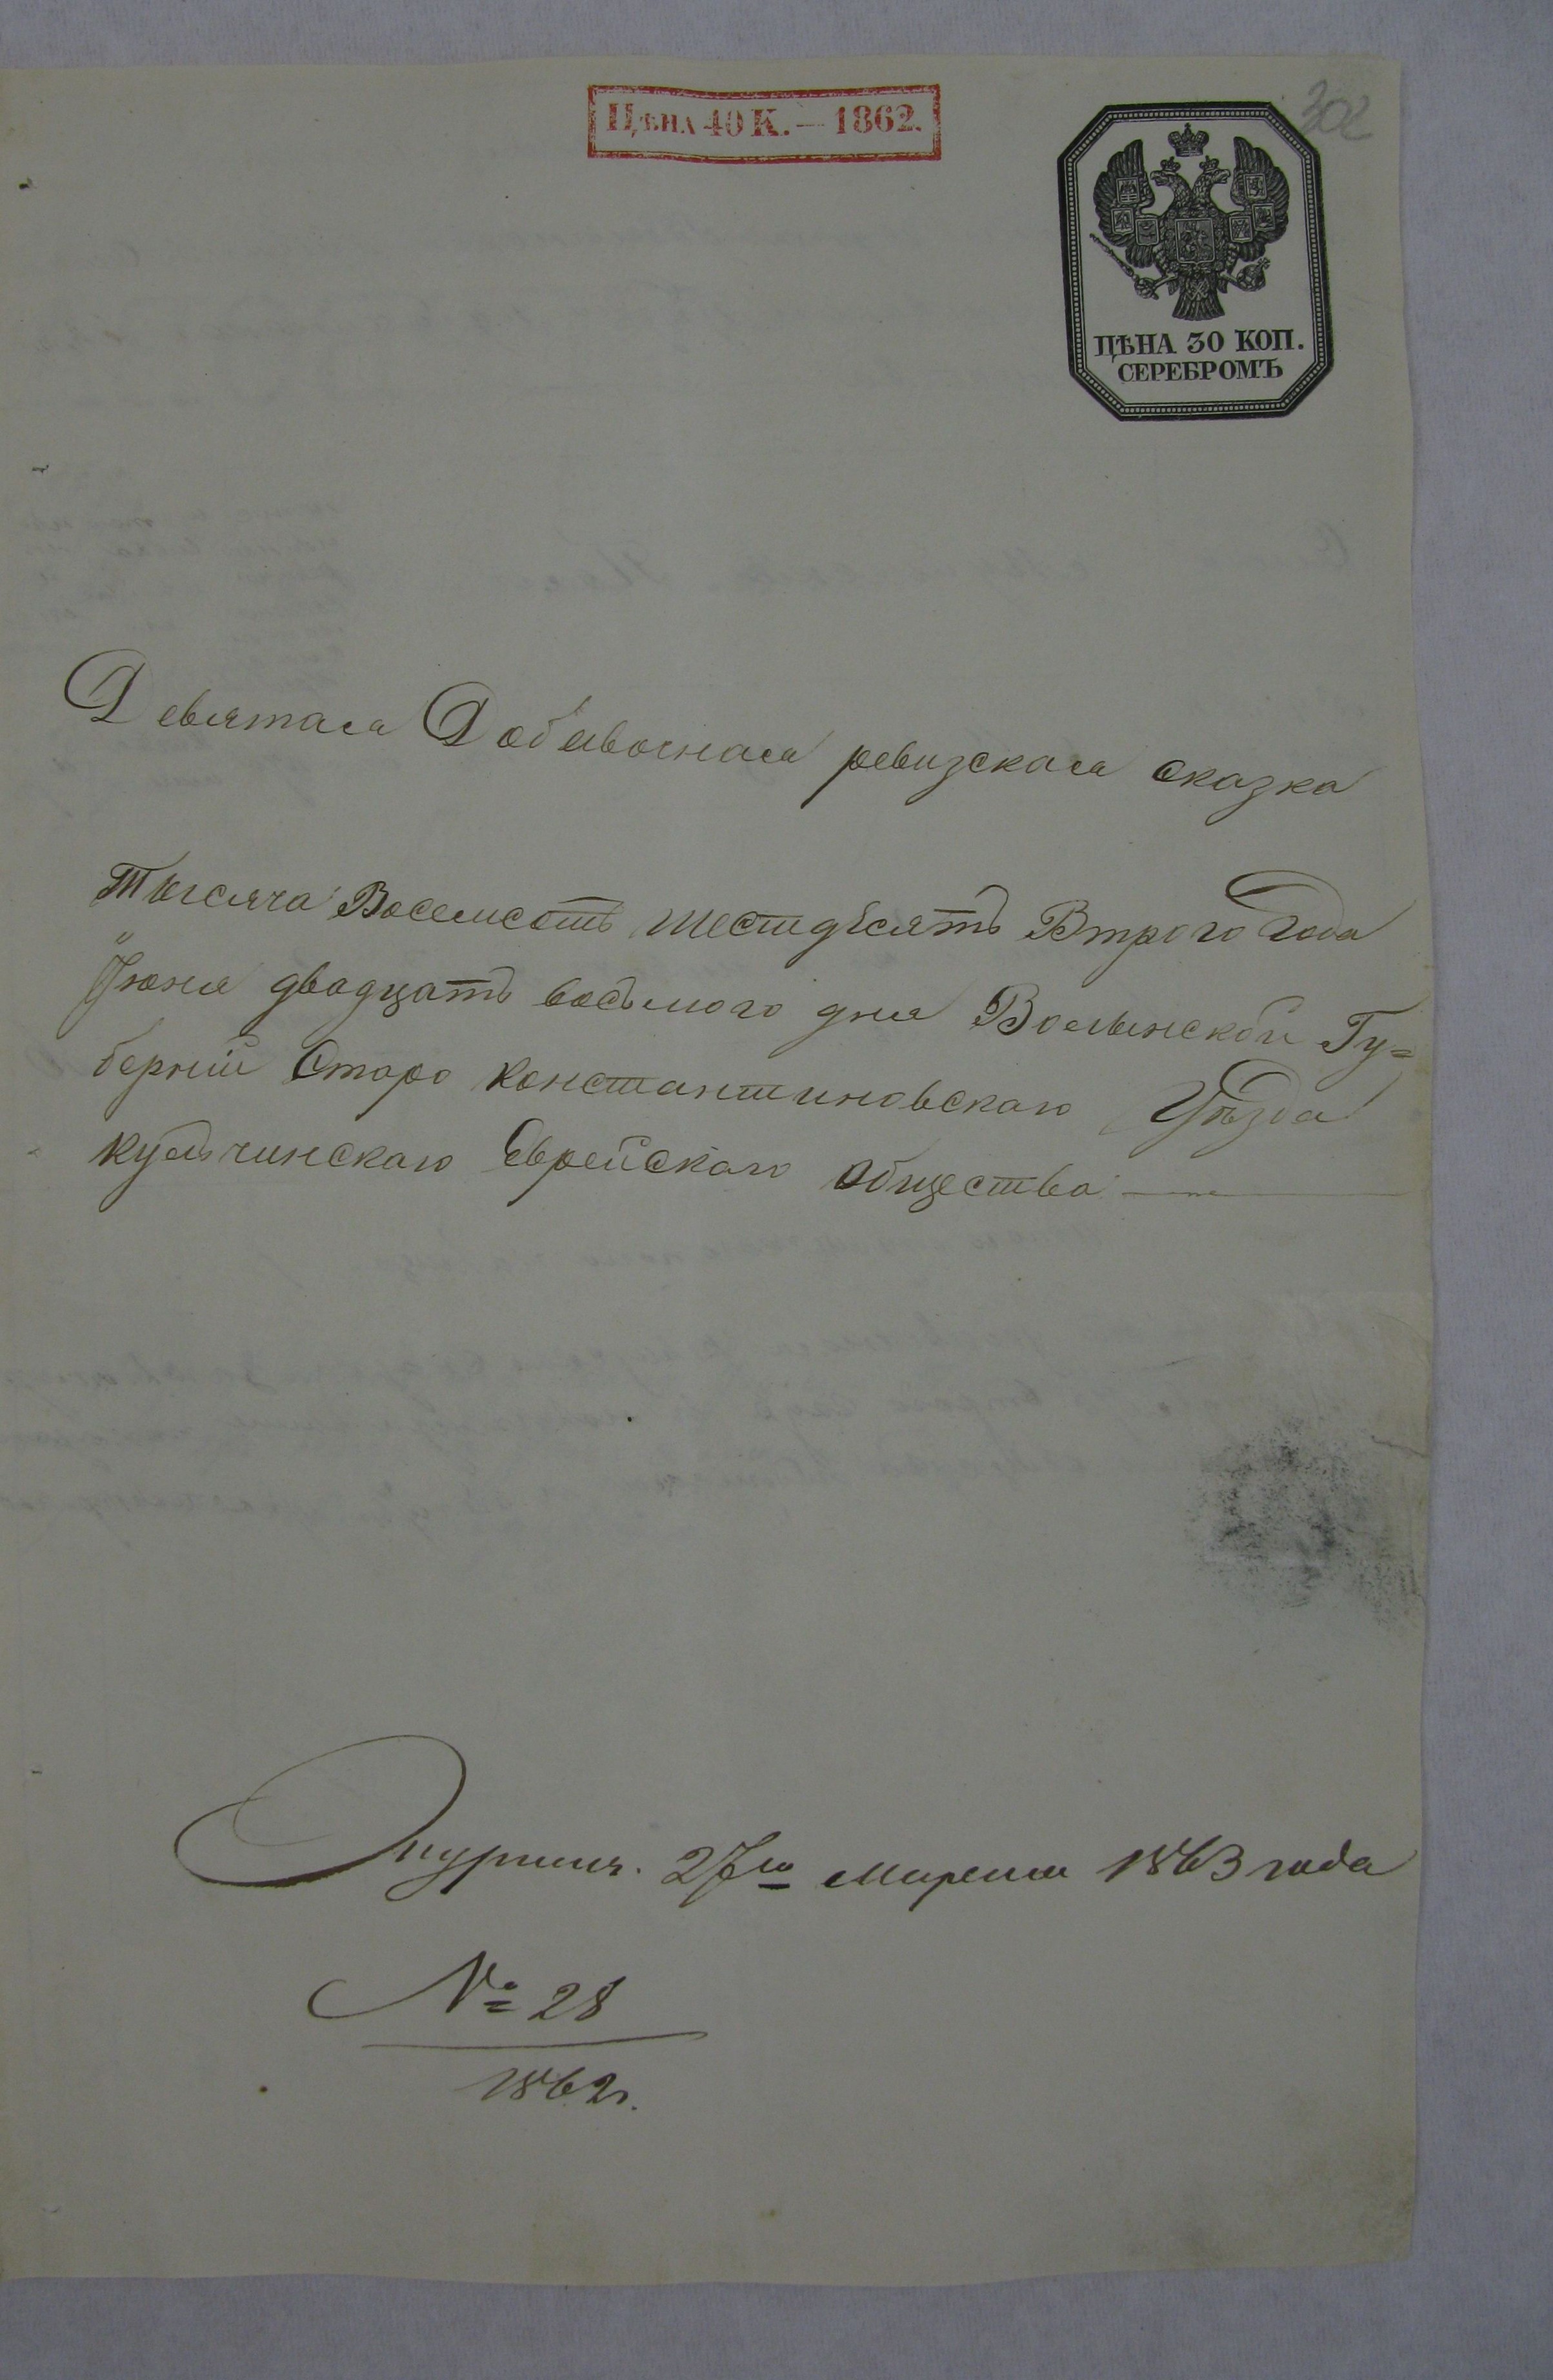 302
Цѣна 40 К. — 1862.
ЦѢНА 30 КОП.
СЕРЕБРОМЪ
Девятая Добавочная ревизская сказка
Тысяча Восемсотъ шестдѣсятъ Втрого Года
Іюня двадцатъ восьмого дня Волынской Гу=
берніи Старо константиновскаго Уѣзда
кульчинскаго Еврейскаго общества
27го Марта 1863 года
№ 28
1862г.